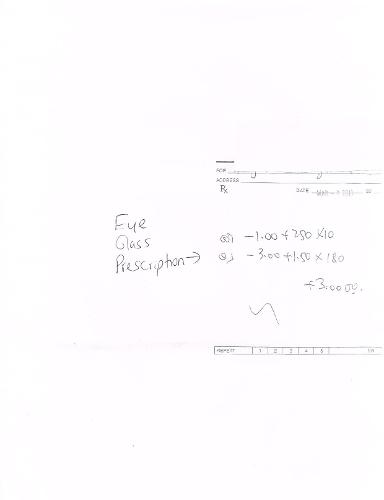 FOR
ADDRESS
Rx
DATE MAR
Eye
Glass
Prescription →
-1.00 +250 x10
-3.00 +1.50 x 180
+3.00
REPEAT 1 2 3 4 5